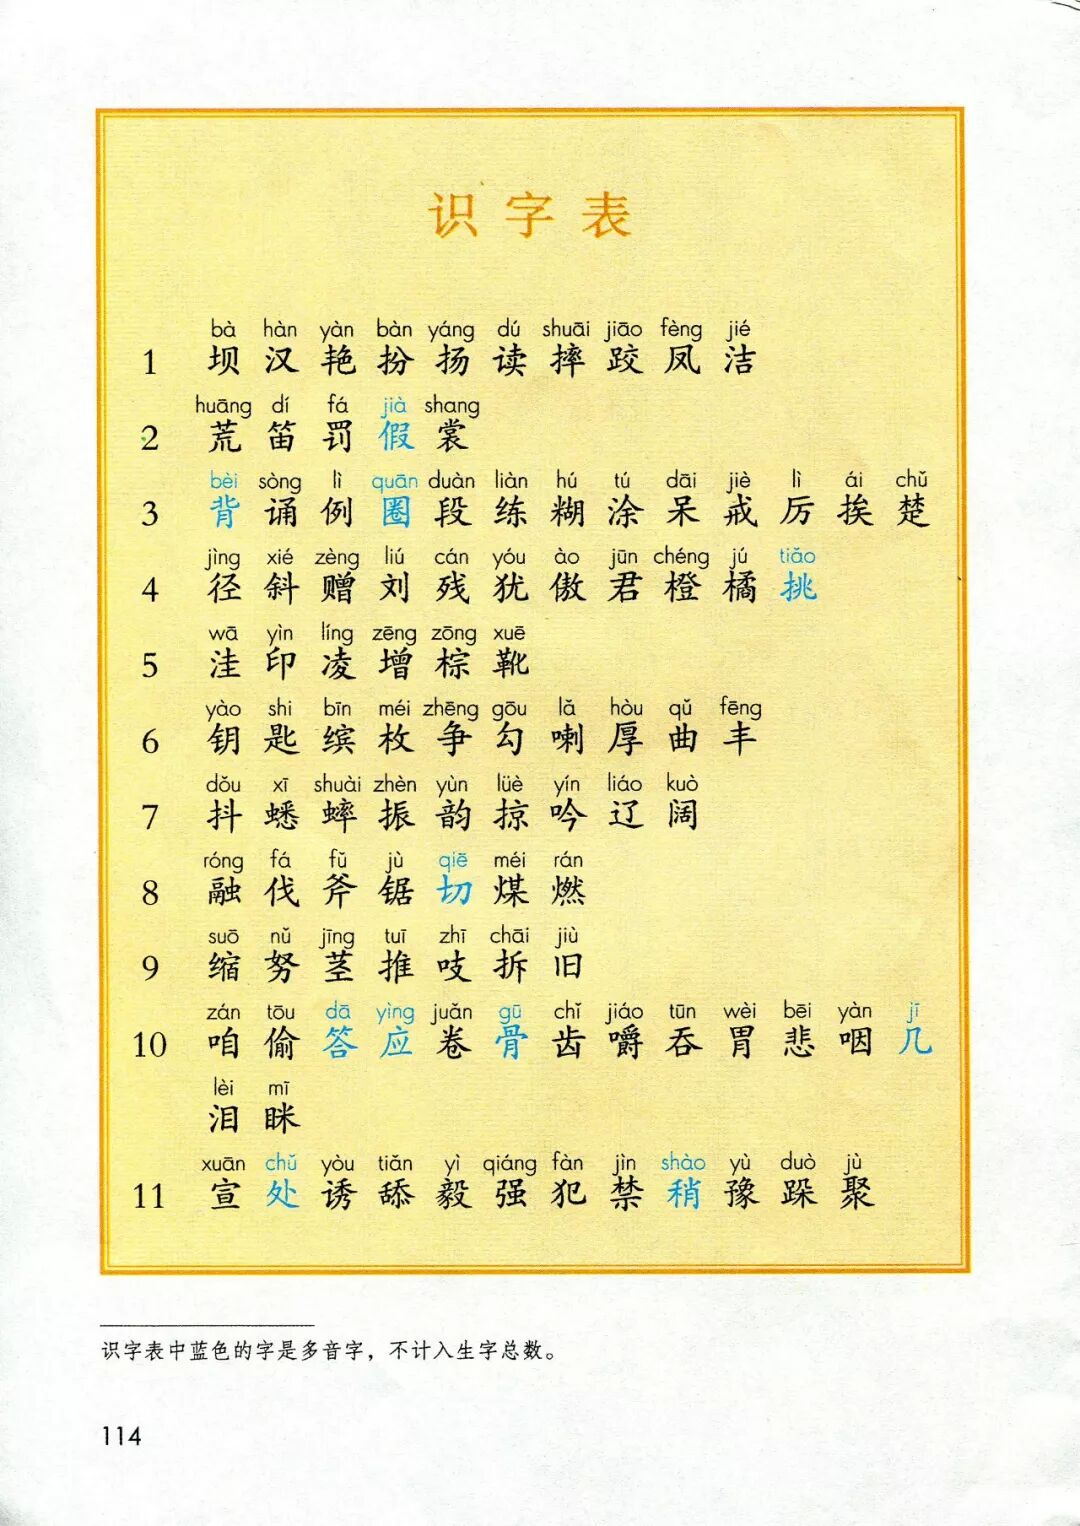 识字表
bà hàn yàn bàn yáng dú shuāi jiāo fèng jié
1 坝 汉 艳 扮 扬 读 摔 跤 凤 洁
huāng dí fá jià shang
2 荒 笛 罚 假 裳
bèi sòng lì quān duàn liàn hú tú dāi jiè lì ái chǔ
3 背 诵 例 圈 段 练 糊 涂 呆 戒 厉 挨 楚
jìng xié zèng liú cán yóu ào jūn chéng jú tiǎo
4 径 斜 赠 刘 残 犹 傲 君 橙 橘 挑
wā yìn líng zēng zōng xuē
5 洼 印 凌 增 棕 靴
yào shi bīn méi zhēng gōu lǎ hòu qǔ fēng
6 钥 匙 缤 枚 争 勾 喇 厚 曲 丰
dǒu xī shuài zhèn yùn lüè yín liáo kuò
7 抖 蟋 蟀 振 韵 掠 吟 辽 阔
róng fá fǔ jù qiē méi rán
8 融 伐 斧 锯 切 煤 燃
suō nǔ jīng tuī zhī chāi jiù
9 缩 努 茎 推 吱 拆 旧
zán tōu dā yìng juǎn gū chǐ jiáo tūn wèi bēi yàn jī
10 咱 偷 答 应 卷 骨 齿 嚼 吞 胃 悲 咽 几
lèi mī
泪 眯
xuān chǔ yòu tiǎn yì qiáng fàn jìn shào yù duò jù
11 宣 处 诱 舔 毅 强 犯 禁 稍 豫 跺 聚
识字表中蓝色的字是多音字，不计入生字总数。
114